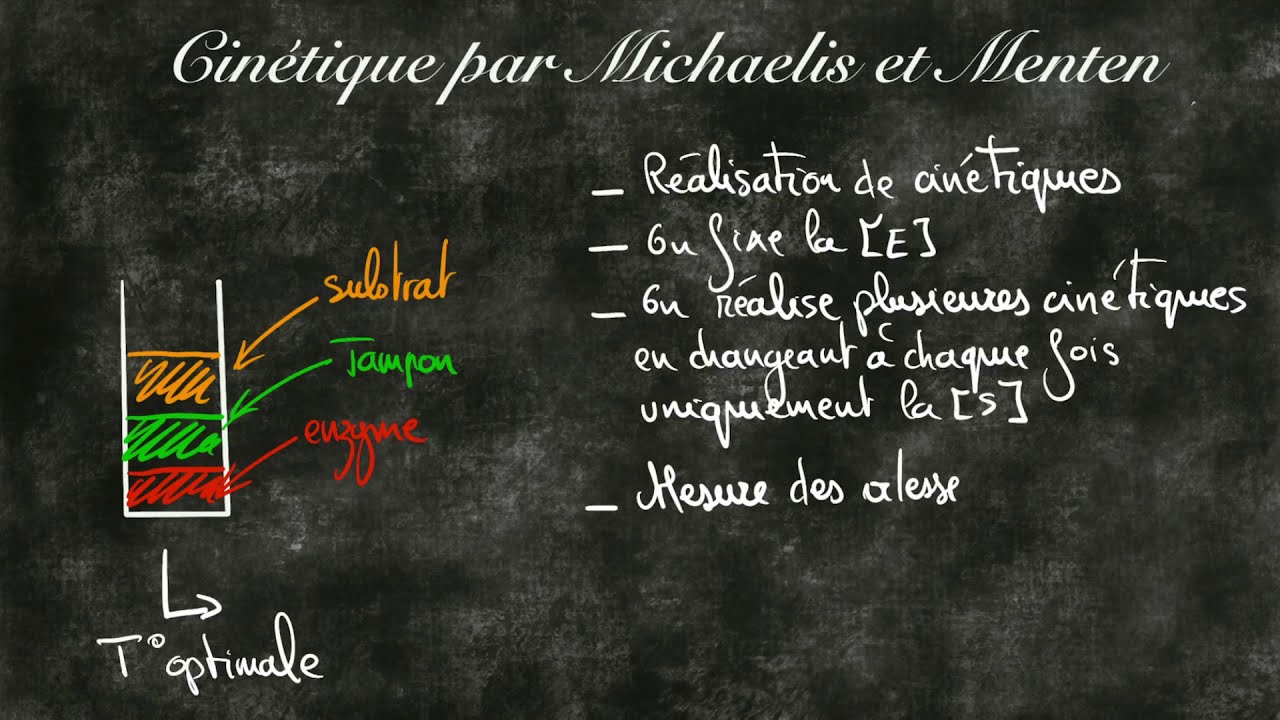 Cinétique par Michaelis et Menten
_ Réalisation de cinétiques
_ On fixe la [E]
_ On réalise plusieures cinétiques
en changeant à chaque fois
uniquement la [S]
_ Mesure des
substrat
Tampon
enzyme
T° optimale